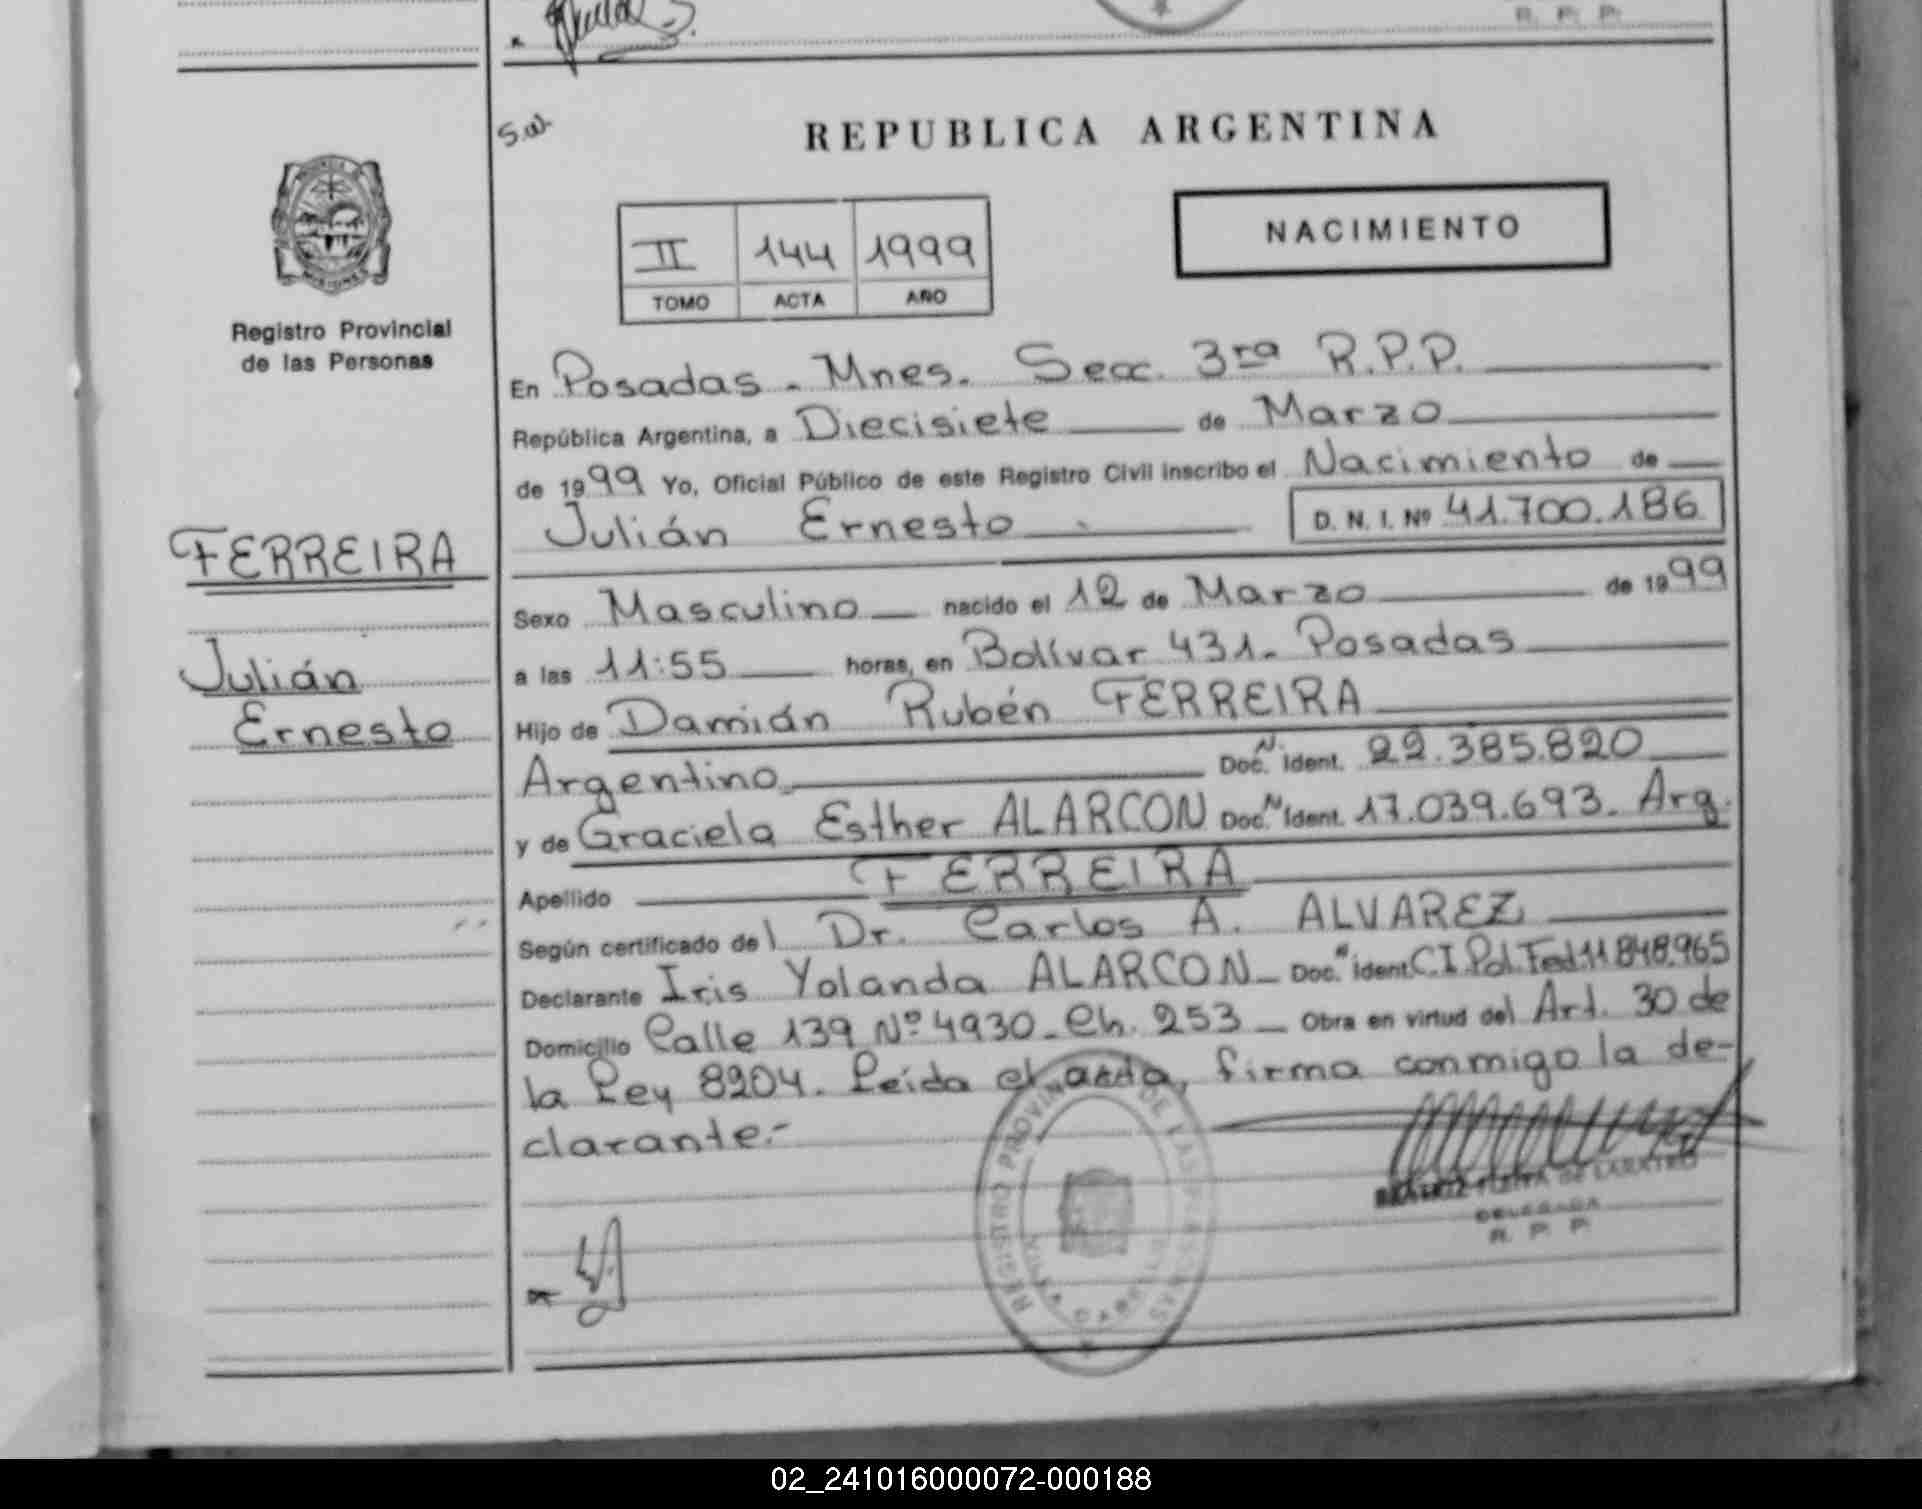 R. P. P.
S.W.
REPUBLICA ARGENTINA
NACIMIENTO
II 144 1999
TOMO ACTA AÑO
Registro Provincial
de las Personas
En Posadas - Mnes. Secc. 3ra R.P.P.
República Argentina, a Diecisiete de Marzo
de 1999 Yo, Oficial Público de este Registro Civil inscribo el Nacimiento de
Julián Ernesto D. N. I. Nº 41.700.186
FERREIRA
Julián
Ernesto
Sexo Masculino nacido el 12 de Marzo de 1999
a las 11:55 horas, en Bolívar 431. Posadas
Hijo de Damián Rubén FERREIRA
Argentino Doc. N Ident. 22.385.820
y de Graciela Esther ALARCON Doc. N Ident. 17.039.693. Arg.
Apellido FERREIRA
Según certificado del Dr. Carlos A. ALVAREZ
Declarante Iris Yolanda ALARCON Doc. N Ident C.I.Pol.Fed.11.848.965
Domicilio Calle 139 Nº 4930 - Ch. 253 Obra en virtud del Art. 30 de
la Ley 8204. Leída el acta, firma conmigo la de-
clarante.-
REGISTRO PROVINCIAL DE LAS PERSONAS
VILLA CABELLO
DELEGADA
R. P. P.
02_241016000072-000188